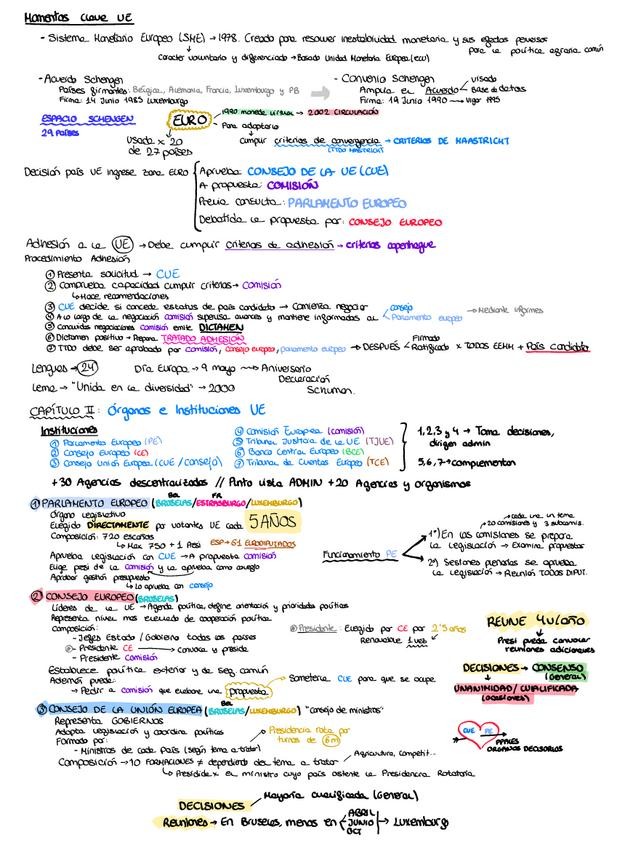 Momentos clave UE
- Sistema Monetario Europeo (SME) → 1978. Creado para resolver inestabilidad monetaria y sus efectos perversos
para la política agraria común
Caracter voluntario y diferenciado → Basado Unidad Monetaria Europea (ecu)
- Acuerdo Schengen
Países firmantes: Bélgica, Alemania, Francia, Luxemburgo y PB
Firma: 14 Junio 1985 Luxemburgo
- Convenio Schengen
Amplía el Acuerdo
visado
Base de datos
Firma: 19 Junio 1990 → Vigor 1995
ESPACIO SCHENGEN
29 Países
EURO
1990 moneda virtual → 2002 CIRCULACIÓN
Para adoptarlo
Usada x 20
de 27 países
cumplir criterios de convergencia → CRITERIOS DE MAASTRICHT
(TTDO MAASTRICHT)
Decisión país UE ingrese zona EURO
Aprueba CONSEJO DE LA UE (CUE)
A propuesta: COMISIÓN
Previa consulta: PARLAMENTO EUROPEO
Debatida la propuesta por: CONSEJO EUROPEO
Adhesión a la UE → Debe cumplir criterios de adhesión → criterios copenhague
Procedimiento Adhesión
① Presenta solicitud → CUE
② Comprueba capacidad cumplir criterios → Comisión
↳ Hace recomendaciones
③ CUE decide si concede estatus de país candidato → Comienza negociar
④ A lo largo de la negociación comisión supervisa avances y mantiene informados al
consejo
Parlamento europeo
→ Mediante informes
⑤ Concluidas negociaciones comisión emite DICTAMEN
⑥ Dictamen positivo → Prepara TRATADO ADHESIÓN
⑦ TTDO debe ser aprobado por comisión, consejo europeo, parlamento europeo → DESPUÉS
Firmado
Ratificado x TODOS EEMM + País candidato
Lenguas → 24
Día Europa → 9 mayo → Aniversario
Declaración
Schuman.
Lema → "Unida en la diversidad" → 2000
CAPÍTULO II: Órganos e Instituciones UE
Instituciones
① Parlamento Europeo (PE)
② Consejo Europeo (CE)
③ Consejo Unión Europea (CUE / consejo)
④ Comisión Europea (comisión)
⑤ Tribunal Justicia de la UE (TJUE)
⑥ Banco Central Europeo (BCE)
⑦ Tribunal de Cuentas Europeo (TCE)
1, 2, 3 y 4 → Toma decisiones,
dirigen admin
5, 6, 7 → complementan
+30 Agencias descentralizadas // Punto vista ADMIN +20 Agencias y organismos
① PARLAMENTO EUROPEO (BRUSELAS/ESTRASBURGO/LUXEMBURGO)
Órgano legislativo
Elegido DIRECTAMENTE por votantes UE cada 5 AÑOS
Composición: 720 escaños
↳ Max 750 + 1 Presi
ESP → 61 EURODIPUTADOS
Aprueba legislación con CUE → A propuesta comisión
Elige presi de la comisión y la aprueba como consejo
Aprobar gestión presupuesto
↳ Lo aprueba con consejo
Funcionamiento PE
→ cada una un tema
→ 20 comisiones y 3 subcomis.
1º) En las comisiones se prepara
la legislación → Examina propuestas
2º) Sesiones plenarias se aprueba
la legislación → Reunión TODOS DIPUT.
② CONSEJO EUROPEO (BRUSELAS)
Líderes de la UE → Agenda política, define orientación y prioridades políticas
Representa nivel mas elevado de cooperación política
Composición:
- Jefes Estado / Gobierno todos los países
- Presidente CE → Convoca y preside
- Presidente Comisión
Presidente: Elegido por CE por 2'5 años
Renovable 1 vez
Establece política exterior y de seg común
Además puede:
→ Pedir a comisión que elabore una propuesta
Someterla CUE para que se ocupe
REUNE 4v/año
Presi puede convocar
reuniones adicionales
DECISIONES → CONSENSO
(General)
UNANIMIDAD / CUALIFICADA
(ocasiones)
③ CONSEJO DE LA UNIÓN EUROPEA (BRUSELAS/LUXEMBURGO) "consejo de ministros"
Representa GOBIERNOS
Adopta legislación y coordina políticas
Formado por:
- Ministros de cada país (según tema a tratar)
Presidencia rota por
turnos de 6m
Composición → 10 FORMACIONES ≠ dependiendo del tema a tratar
Agricultura, competit...
↳ Presidida x el ministro cuyo país ostente la Presidencia Rotatoria
CUE PE
→ PPALES
ORGANOS DECISORIOS
DECISIONES
Mayoría cualificada (General)
Reuniones → En Bruselas, menos en
ABRIL
JUNIO
OCT
→ Luxemburgo